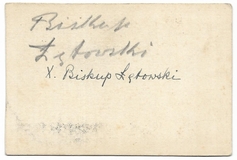 Biskup
Łętowski
X. Biskup Łętowski